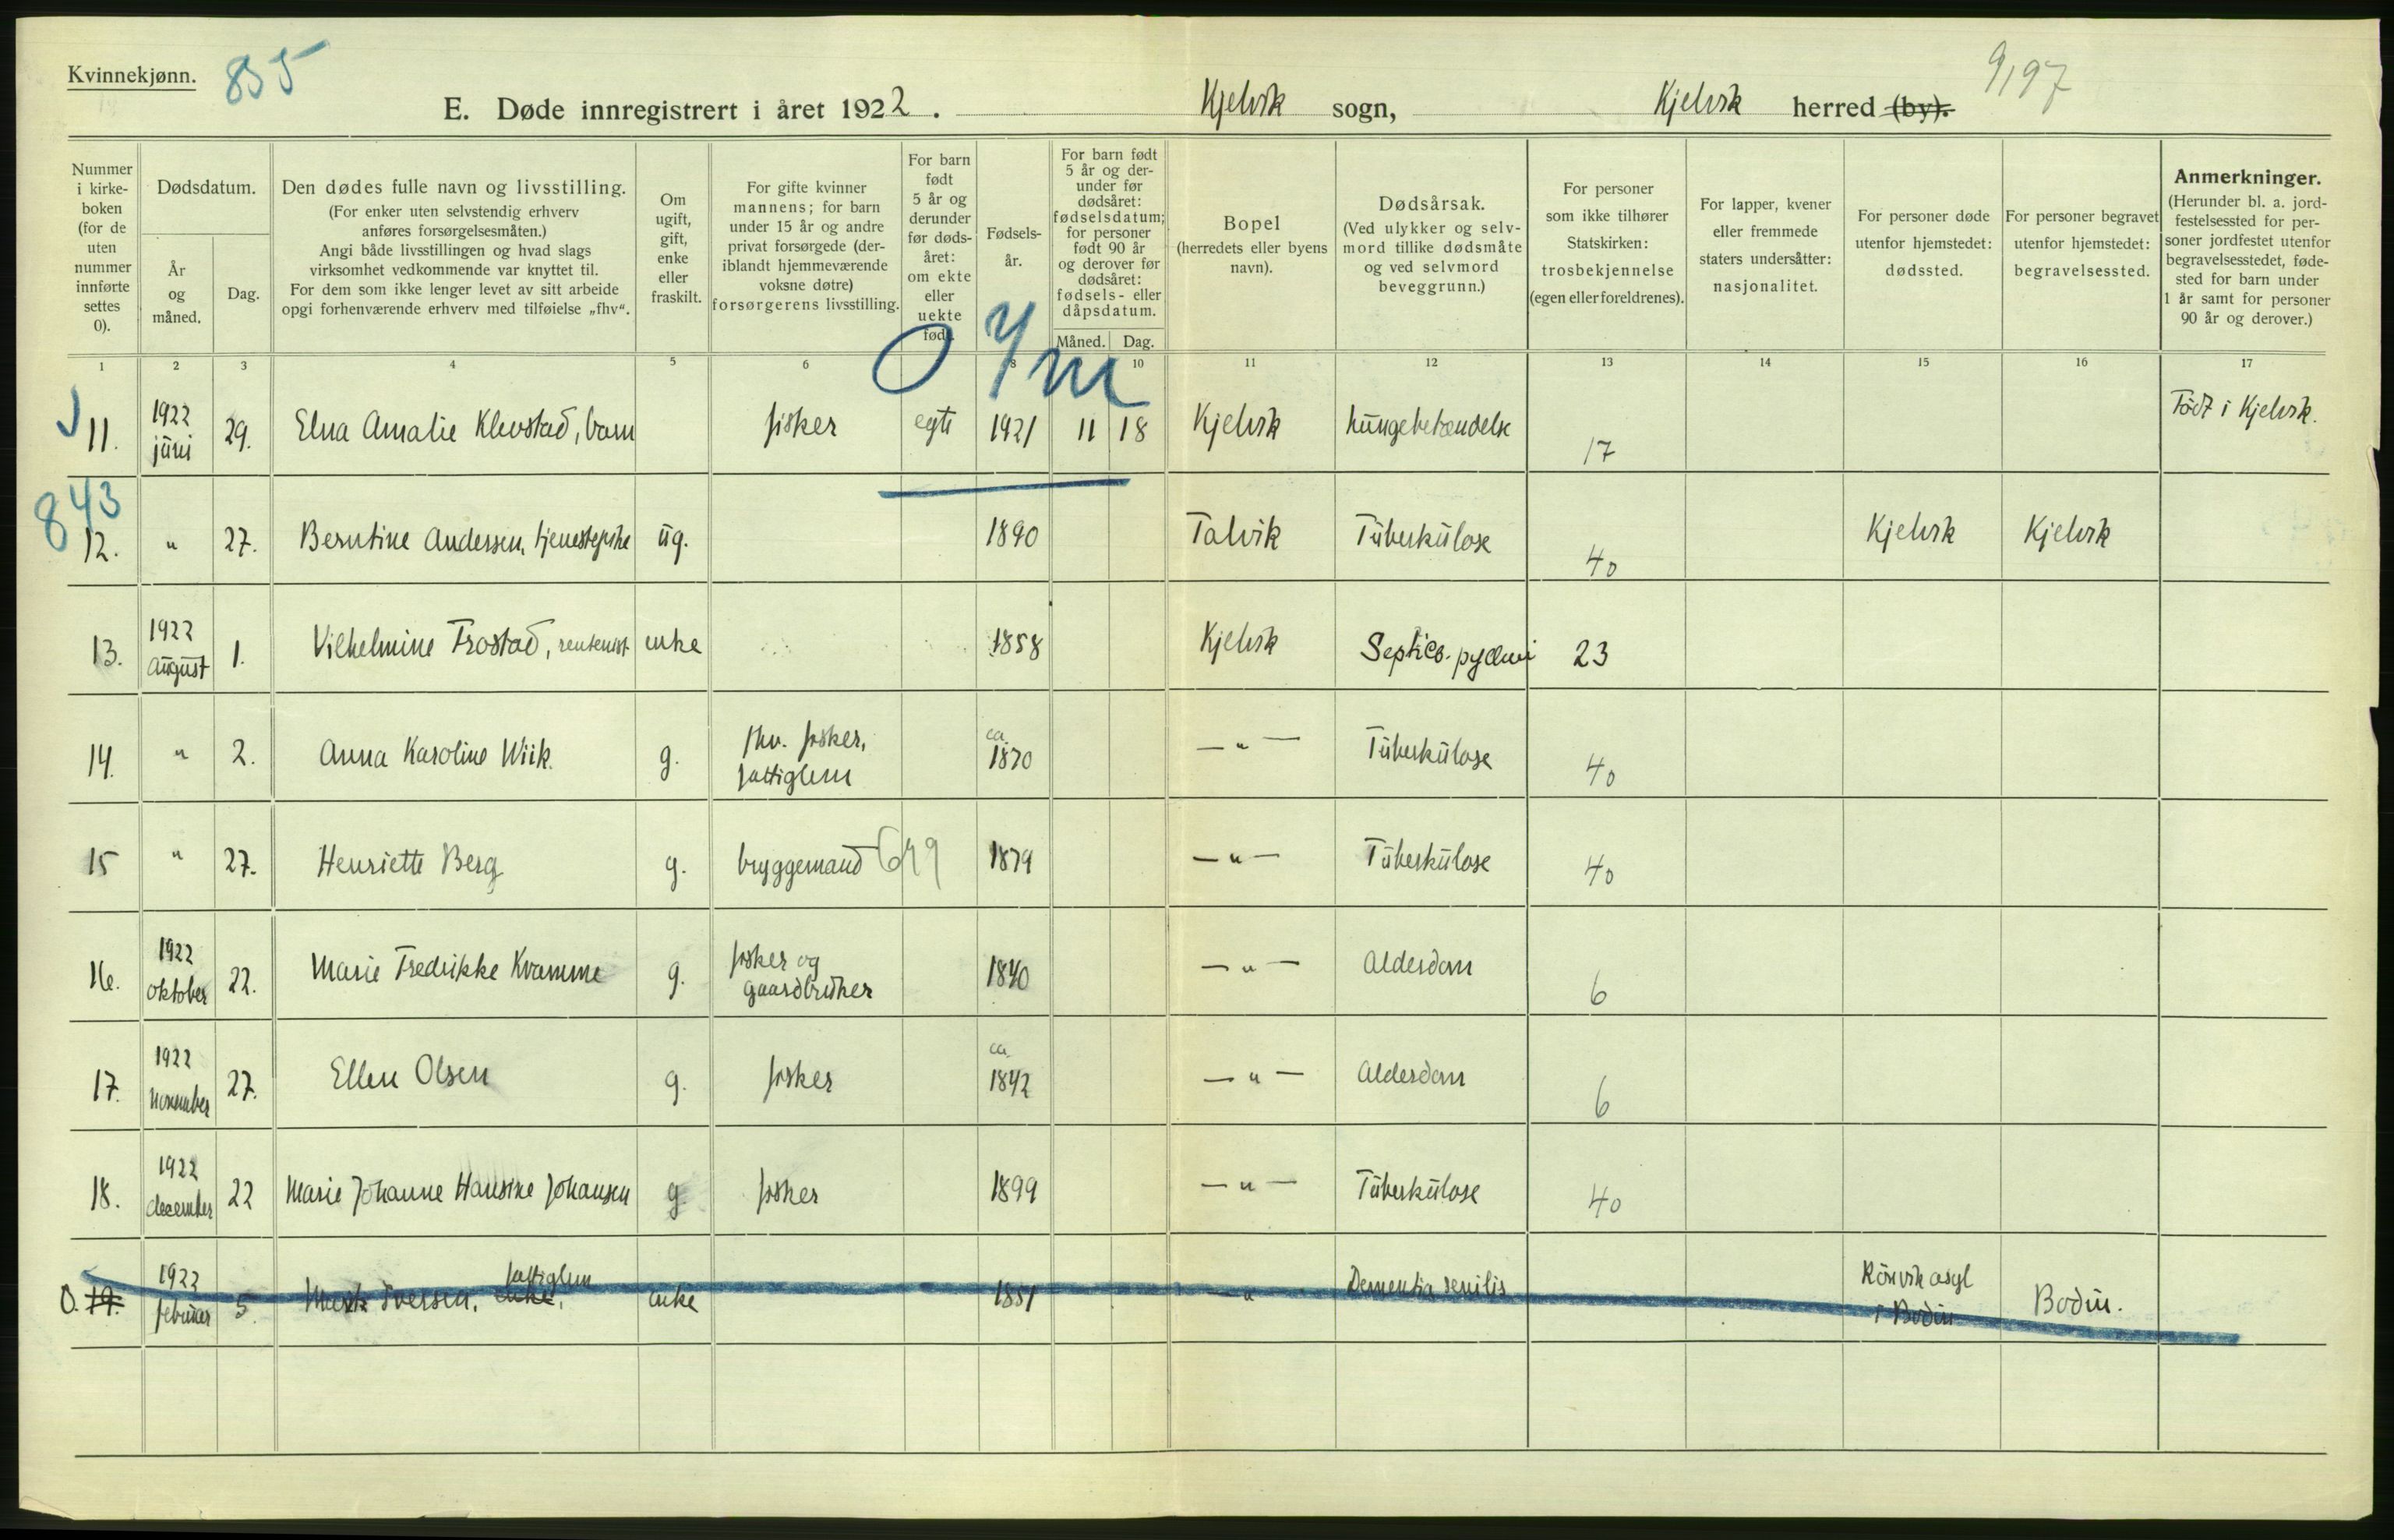 Kvinnekjønn.
855
9197
E. Døde innregistrert i året 1922. Kjelvik sogn, Kjelvik herred (by).
Nummer i kirke-boken (for de uten nummer innførte settes 0).
Dødsdatum.
År og måned.
Dag.
Den dødes fulle navn og livsstilling.
(For enker uten selvstendig erhverv anføres forsørgelsesmåten.)
Angi både livsstillingen og hvad slags virksomhet vedkommende var knyttet til.
For dem som ikke lenger levet av sitt arbeide opgi forhenværende erhverv med tilføielse „fhv“.
Om ugift, gift, enke eller fraskilt.
For gifte kvinner mannens; for barn under 15 år og andre privat forsørgede (deriblandt hjemmeværende voksne døtre) forsørgerens livsstilling.
For barn født 5 år og derunder før døds-året: om ekte eller uekte født.
Fødsels-år.
For barn født 5 år og der-under før dødsåret: fødselsdatum; for personer født 90 år og derover før dødsåret: fødsels- eller dåpsdatum.
Måned. Dag.
Bopel
(herredets eller byens navn).
Dødsårsak.
(Ved ulykker og selv-mord tillike dødsmåte og ved selvmord beveggrunn.)
For personer som ikke tilhører Statskirken: trosbekjennelse (egen eller foreldrenes).
For lapper, kvener eller fremmede staters undersåtter: nasjonalitet.
For personer døde utenfor hjemstedet: dødssted.
For personer begravet utenfor hjemstedet: begravelsessted.
Anmerkninger.
(Herunder bl. a. jord-festelsessted for per-soner jordfestet utenfor begravelsesstedet, føde-sted for barn under 1 år samt for personer 90 år og derover.)
1 2 3 4 5 6 8 10 11 12 13 14 15 16 17
11. 1922 juni 29. Elna Amalie Klevstad, barn fisker egte 1921 11 18 Kjelvik Lungebetændelse 17 Født i Kjelvik.
843
12. " 27. Berntine Andersen, tjenestepike ug. 1890 Talvik Tuberkulose 40 Kjelvik Kjelvik
13. 1922 august 1. Vilhelmine Trostad, rentenist enke 1858 Kjelvik Septico-pyæmi 23
14. " 2. Anna Karoline Wiik. g. fhv. fisker, fattiglem ca. 1870 — " — Tuberkulose 40
15 " 27. Henriette Berg g. bryggemand 649 1879 — " — Tuberkulose 40
16. 1922 oktober 22. Marie Fredrikke Kvamme g. fisker og gaardbruker 1840 — " — Alderdom 6
17. 1922 november 27. Ellen Olsen g. fisker ca. 1842 — " — Alderdom 6
18. 1922 december 22 Marie Johanne Hansine Johansen g. fisker 1899 — " — Tuberkulose 40
0. 19. 1922 februar 5. Iversen, enke, fattiglem enke 1851 — " Dementia senilis Rönvik asyl i Bodin Bodin.